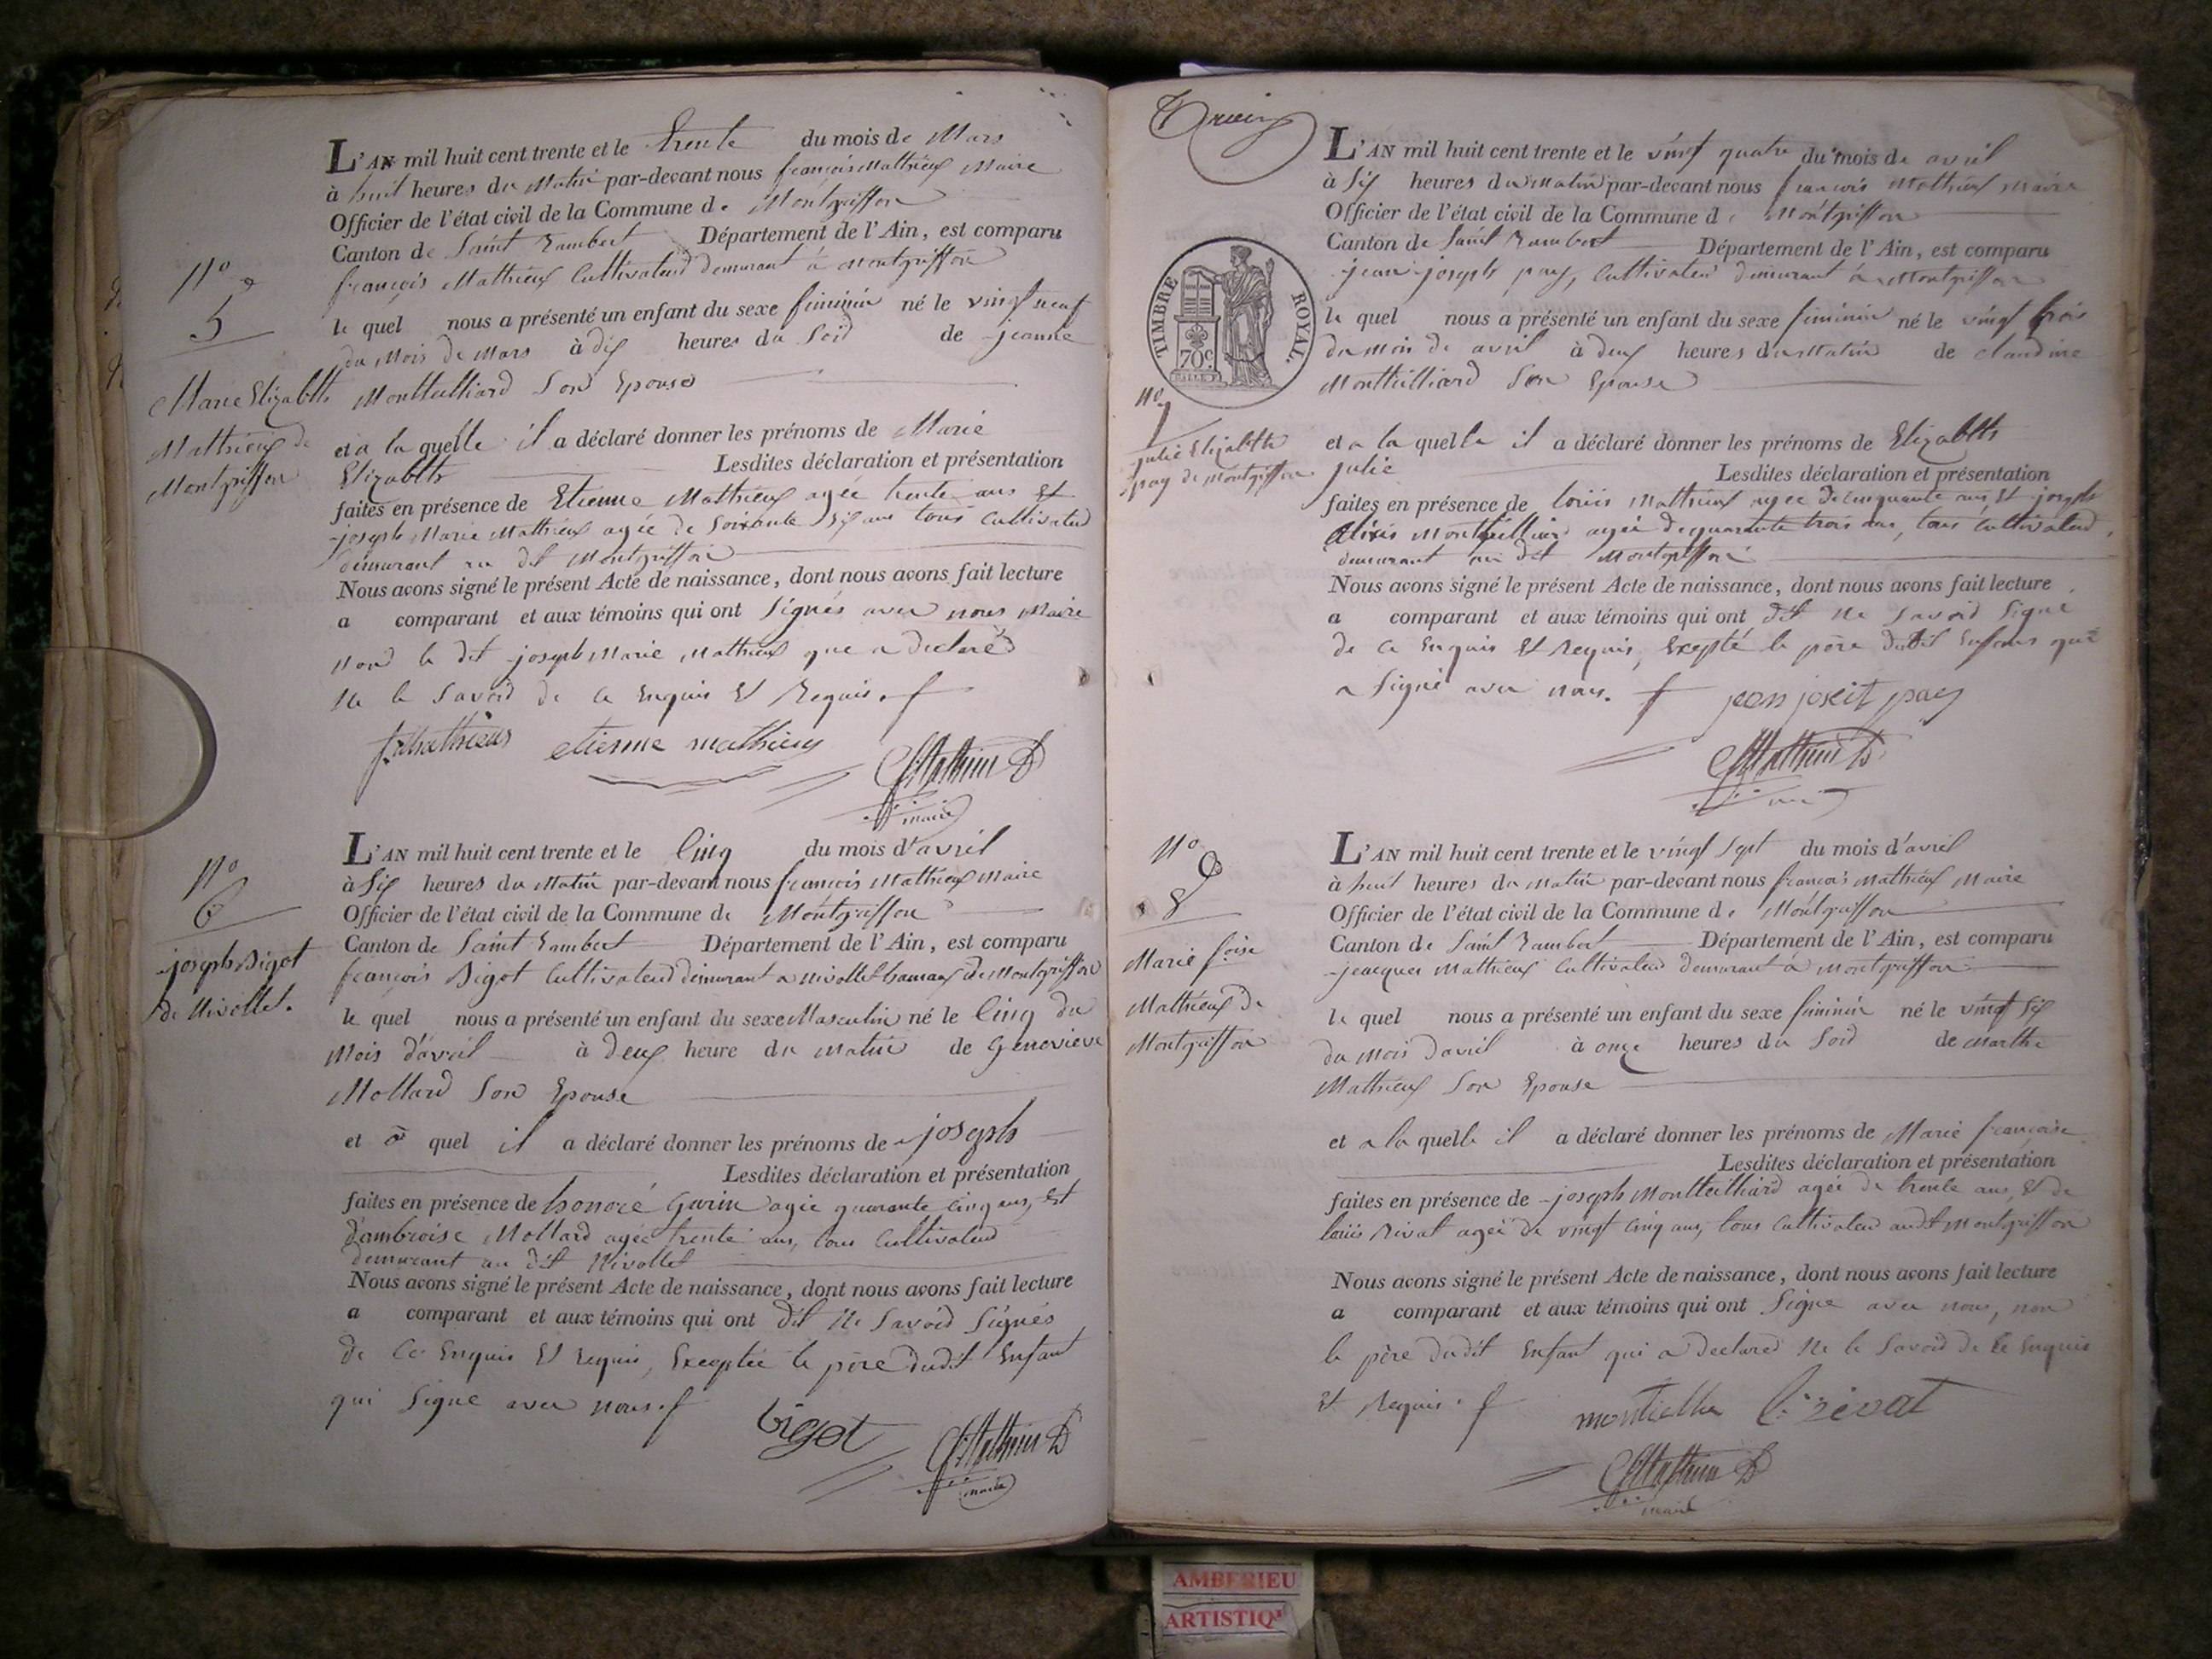 L'AN mil huit cent trente et le trente du mois de Mars
à huit heures du Matin par-devant nous françois Mathieux Maire
Officier de l'état civil de la Commune de Montgriffon
Canton de Saint Rambert Département de l'Ain, est comparu
françois Mathieux Cultivateud demurant à Montgriffon
le quel nous a présenté un enfant du sexe feminin né le vingt neuf
du Mois de Mars à dix heures du Soid de jeanne
Monttulliard Son Epouse
et a la quelle il a déclaré donner les prénoms de Marie
Elizabtth Lesdites déclaration et présentation
faites en présence de Etienne Mathieux agée trente ans Et
joseph Marie Mathieux agée de Soixante Six ans tous Cultivateud
demurant au dit Montgriffon
Nous avons signé le présent Acte de naissance, dont nous avons fait lecture
a comparant et aux témoins qui ont Signés avec nous Maire
Nond le dit joseph Marie Mathieux que a declaréd
Ne le Savoid de Ce Enquis Et Requis.
f Mathieus etienne mathieus
maire
N°
5
Marie Elizabtth
Mathieux de
Montgriffon
L'AN mil huit cent trente et le Cinq du mois d'avril
à Six heures du Matin par-devant nous françois Mathieux Maire
Officier de l'état civil de la Commune de Montgriffon
Canton de Saint Rambert Département de l'Ain, est comparu
françois Bigot Cultivateud demurant a Nivollet hamaux de Montgriffon
le quel nous a présenté un enfant du sexe Masculin né le Cinq du
Mois d'avril à deux heure du Matin de Genevieve
Mollard Son Epouse
et a quel il a déclaré donner les prénoms de joseph
Lesdites déclaration et présentation
faites en présence de honoré Garin agée quarante Cinq ans, Et
d'ambroise Mollard agée trente ans, tous Cultivateud
demurant au dit Nivollet
Nous avons signé le présent Acte de naissance, dont nous avons fait lecture
a comparant et aux témoins qui ont dit Ne Savoid Signés
de Ce Enquis Et requis, Exceptée le père dudit Enfant
qui Signe avec nous.
bigot
maire
N°
6
joseph Bigot
de Nivollet.
L'AN mil huit cent trente et le vingt quatre du mois de avril
à Six heures du Matin par-devant nous françois Mathieux Maire
Officier de l'état civil de la Commune de Montgriffon
Canton de Saint Rambert Département de l'Ain, est comparu
jean joseph pay, Cultivateud demurant à Montgriffon
le quel nous a présenté un enfant du sexe feminin né le vingt trois
du Mois de avril à deux heures du Matin de claudine
Monttulliard Son Epouse
et a la quelle il a déclaré donner les prénoms de Elizabtth
julie Lesdites déclaration et présentation
faites en présence de louis Mathieux agée de cinquante ans Et joseph
agée de quarante trois ans, tous Cultivateud
demurant au dit Montgriffon
Nous avons signé le présent Acte de naissance, dont nous avons fait lecture
a comparant et aux témoins qui ont dit Ne Savoid Signé
de Ce Enquis Et Requis, Excepté le père dudit Enfans que
a Signé avec nous. jean joseit pay
TIMBRE ROYAL.
70c.
N°
7
julie Elizabtth
pay de Montgriffon
L'AN mil huit cent trente et le vingt Sept du mois d'avril
à huit heures du Matin par-devant nous françois Mathieux Maire
Officier de l'état civil de la Commune de Montgriffon
Canton de Saint Rambert Département de l'Ain, est comparu
jeacques Mathieux Cultivateud demurant à Montgriffon
le quel nous a présenté un enfant du sexe feminin né le vingt Six
du Mois d'avril à onze heures du Soid de Marthe
Mathieux Son Epouse
et a la quelle il a déclaré donner les prénoms de Marie françoise
Lesdites déclaration et présentation
faites en présence de joseph Monttulliard agée de trente ans, Et de
louis Rivat agée de vingt Cinq ans, tous Cultivateud audt Montgriffon
Nous avons signé le présent Acte de naissance, dont nous avons fait lecture
a comparant et aux témoins qui ont Signe avec nous, non
le père dudit Enfant qui a Declared Ne le Savoid de Ce Enquis
Et Requis. rivat
maire
N°
8
Marie foise
Mathieux de
Montgriffon
AMBERIEU
ARTISTIQ